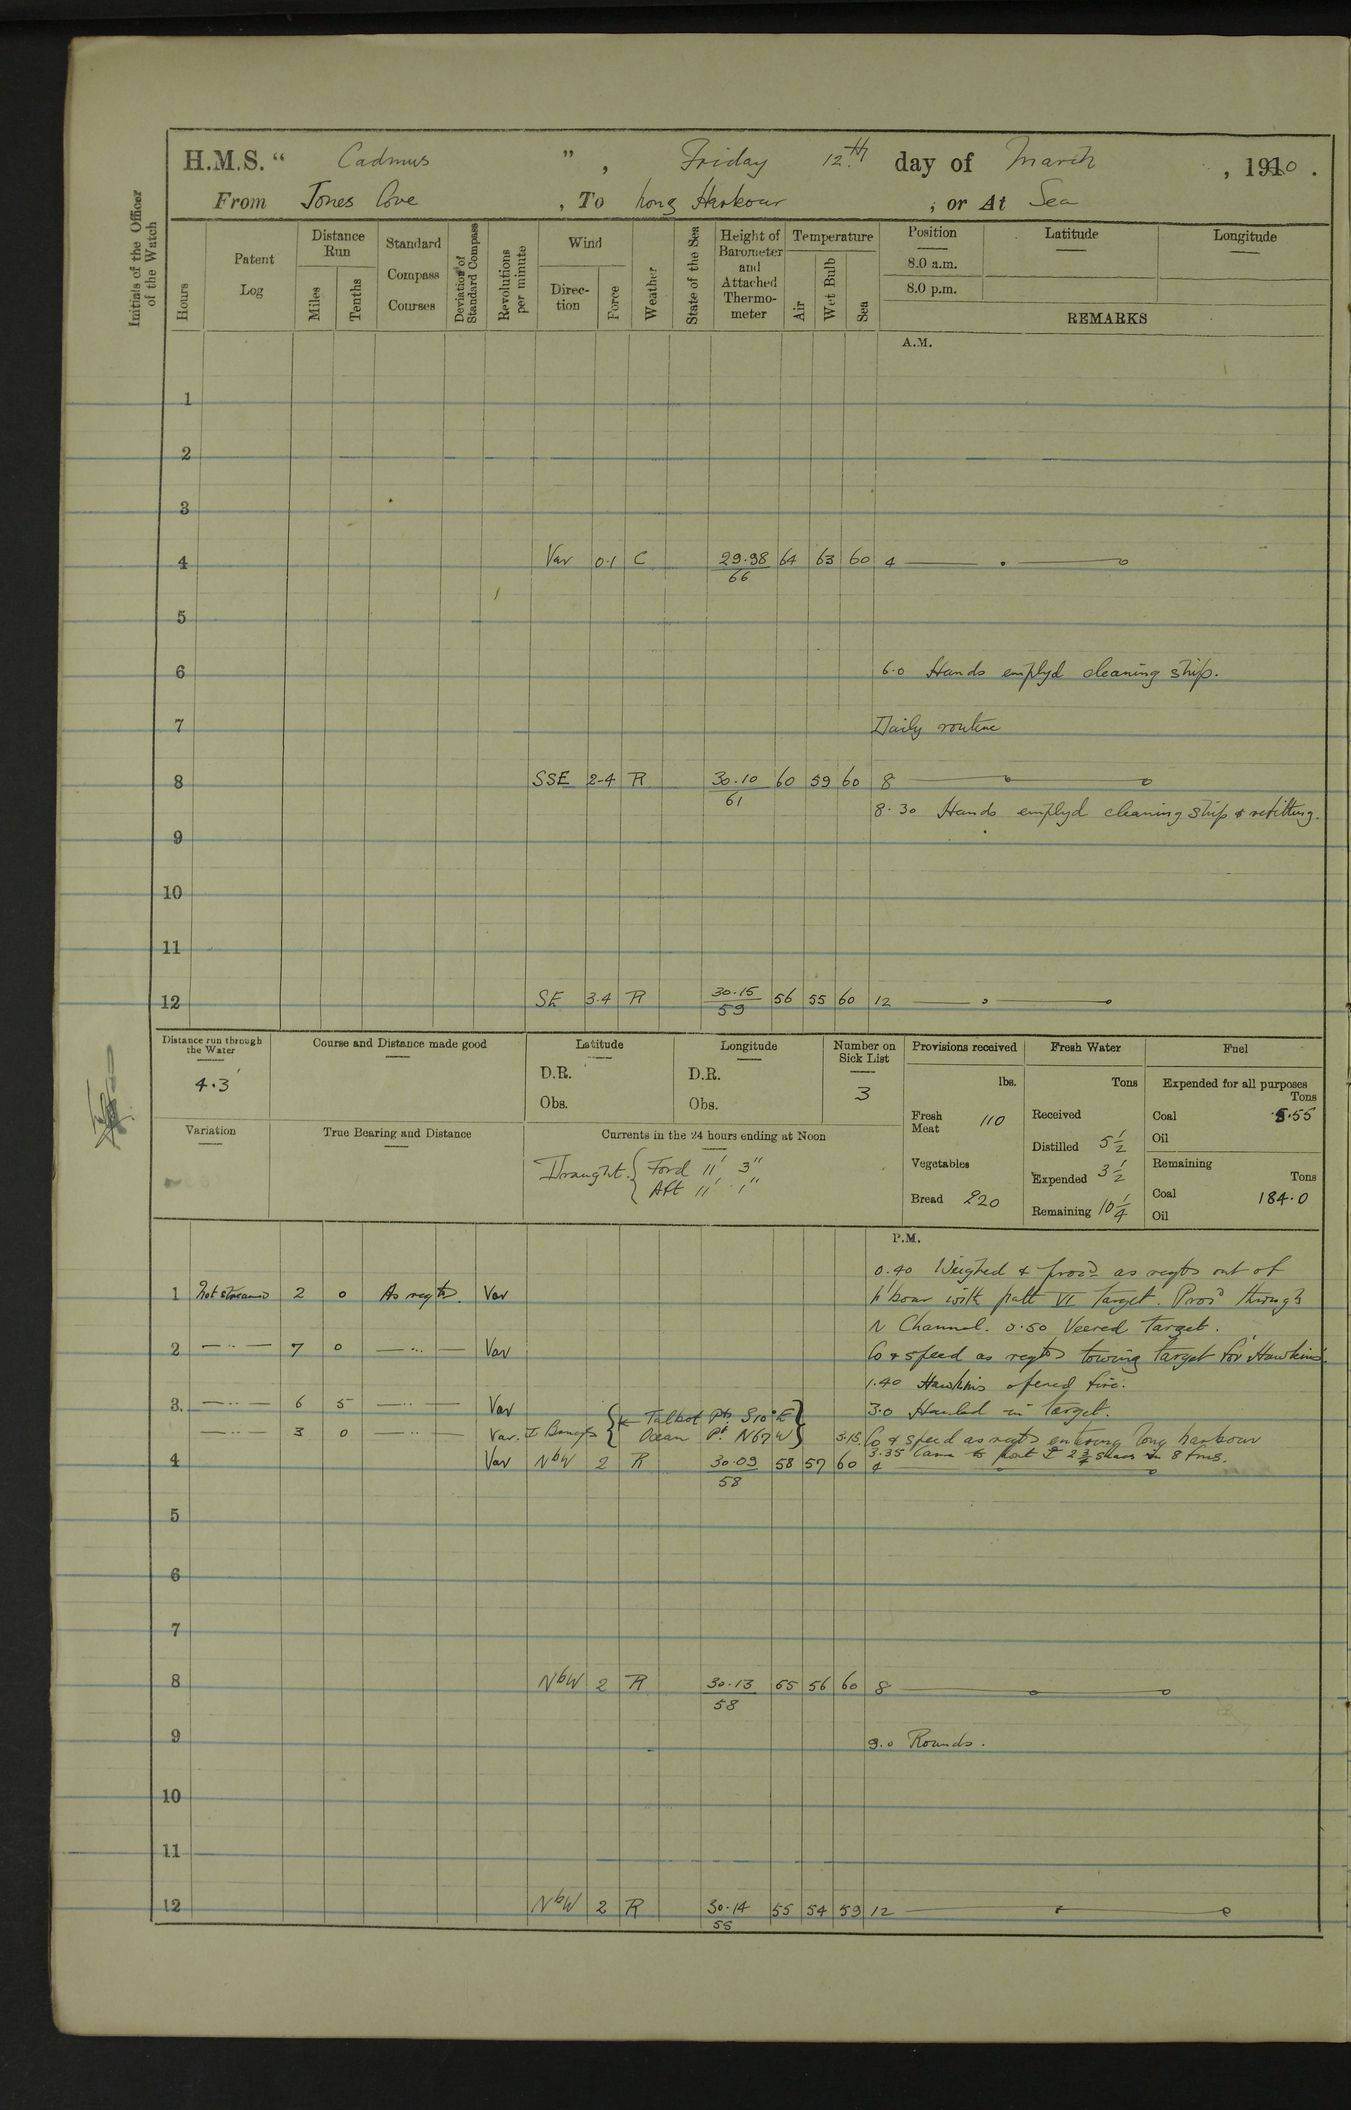 H.M.S. “ Cadmus ” , Friday 12th day of March , 1920 .
From Jones Cove , To Long Harbour , or At Sea
Initials of the Officer of the Watch
Hours
Patent Log
Distance Run
Miles
Tenths
Standard Compass Courses
Deviation of Standard Compass
Revolutions per minute
Wind
Direction
Force
Weather
State of the Sea
Height of Barometer and Attached Thermometer
Temperature
Air
Wet Bulb
Sea
Position
8.0 a.m.
8.0 p.m.
Latitude
Longitude
REMARKS
A.M.
1
2
3
4 Var 0.1 C 29.98 64 63 60 4
66
5
6 6.0 Hands emplyd cleaning ship.
7 Daily routine
8 SSE 2-4 R 30.10 60 59 60 8
61
8.30 Hands emplyd cleaning ship & refitting.
9
10
11
12 SE 3.4 R 30.15 56 55 60 12
59
Distance run through the Water
4.3'
Course and Distance made good
Latitude
D.R.
Obs.
Longitude
D.R.
Obs.
Number on Sick List
3
Provisions received
lbs.
Fresh Meat 110
Vegetables
Bread 220
Fresh Water
Tons
Received
Distilled 5 1/2
Expended 3 1/2
Remaining 10 1/4
Fuel
Expended for all purposes
Tons
Coal 5.55
Oil
Remaining
Tons
Coal 184.0
Oil
Variation
True Bearing and Distance
Currents in the 24 hours ending at Noon
Draught. { Ford 11' 3"
Aft 11' 1"
P.M.
0.40 Weighed & procd as reqts out of
1 Not streamed 2 0 As reqts. Var h'bour with patt VI target. Procd through
N Channel. 0.50 Veered target.
2 — ·· — 7 0 — ··· — Var Co & speed as reqts towing target for 'Hawkins'.
1.40 Hawkins opened fire.
3. — ·· — 6 5 — ·· — Var 3.0 Hauled in target.
— ·· — 3 0 — ·· — Var. Talbot Pt. S10°E
Ocean Pt N67W 3.15 Co & speed as reqts entering Long harbour
3.35 Came to port 2 3/4 shacs in 8 fms.
4 Var NbW 2 R 30.09 58 57 60 4
58
5
6
7
8 NbW 2 R 30.13 55 56 60 8
58
9 9.0 Rounds.
10
11
12 NbW 2 R 30.14 55 54 59 12
55